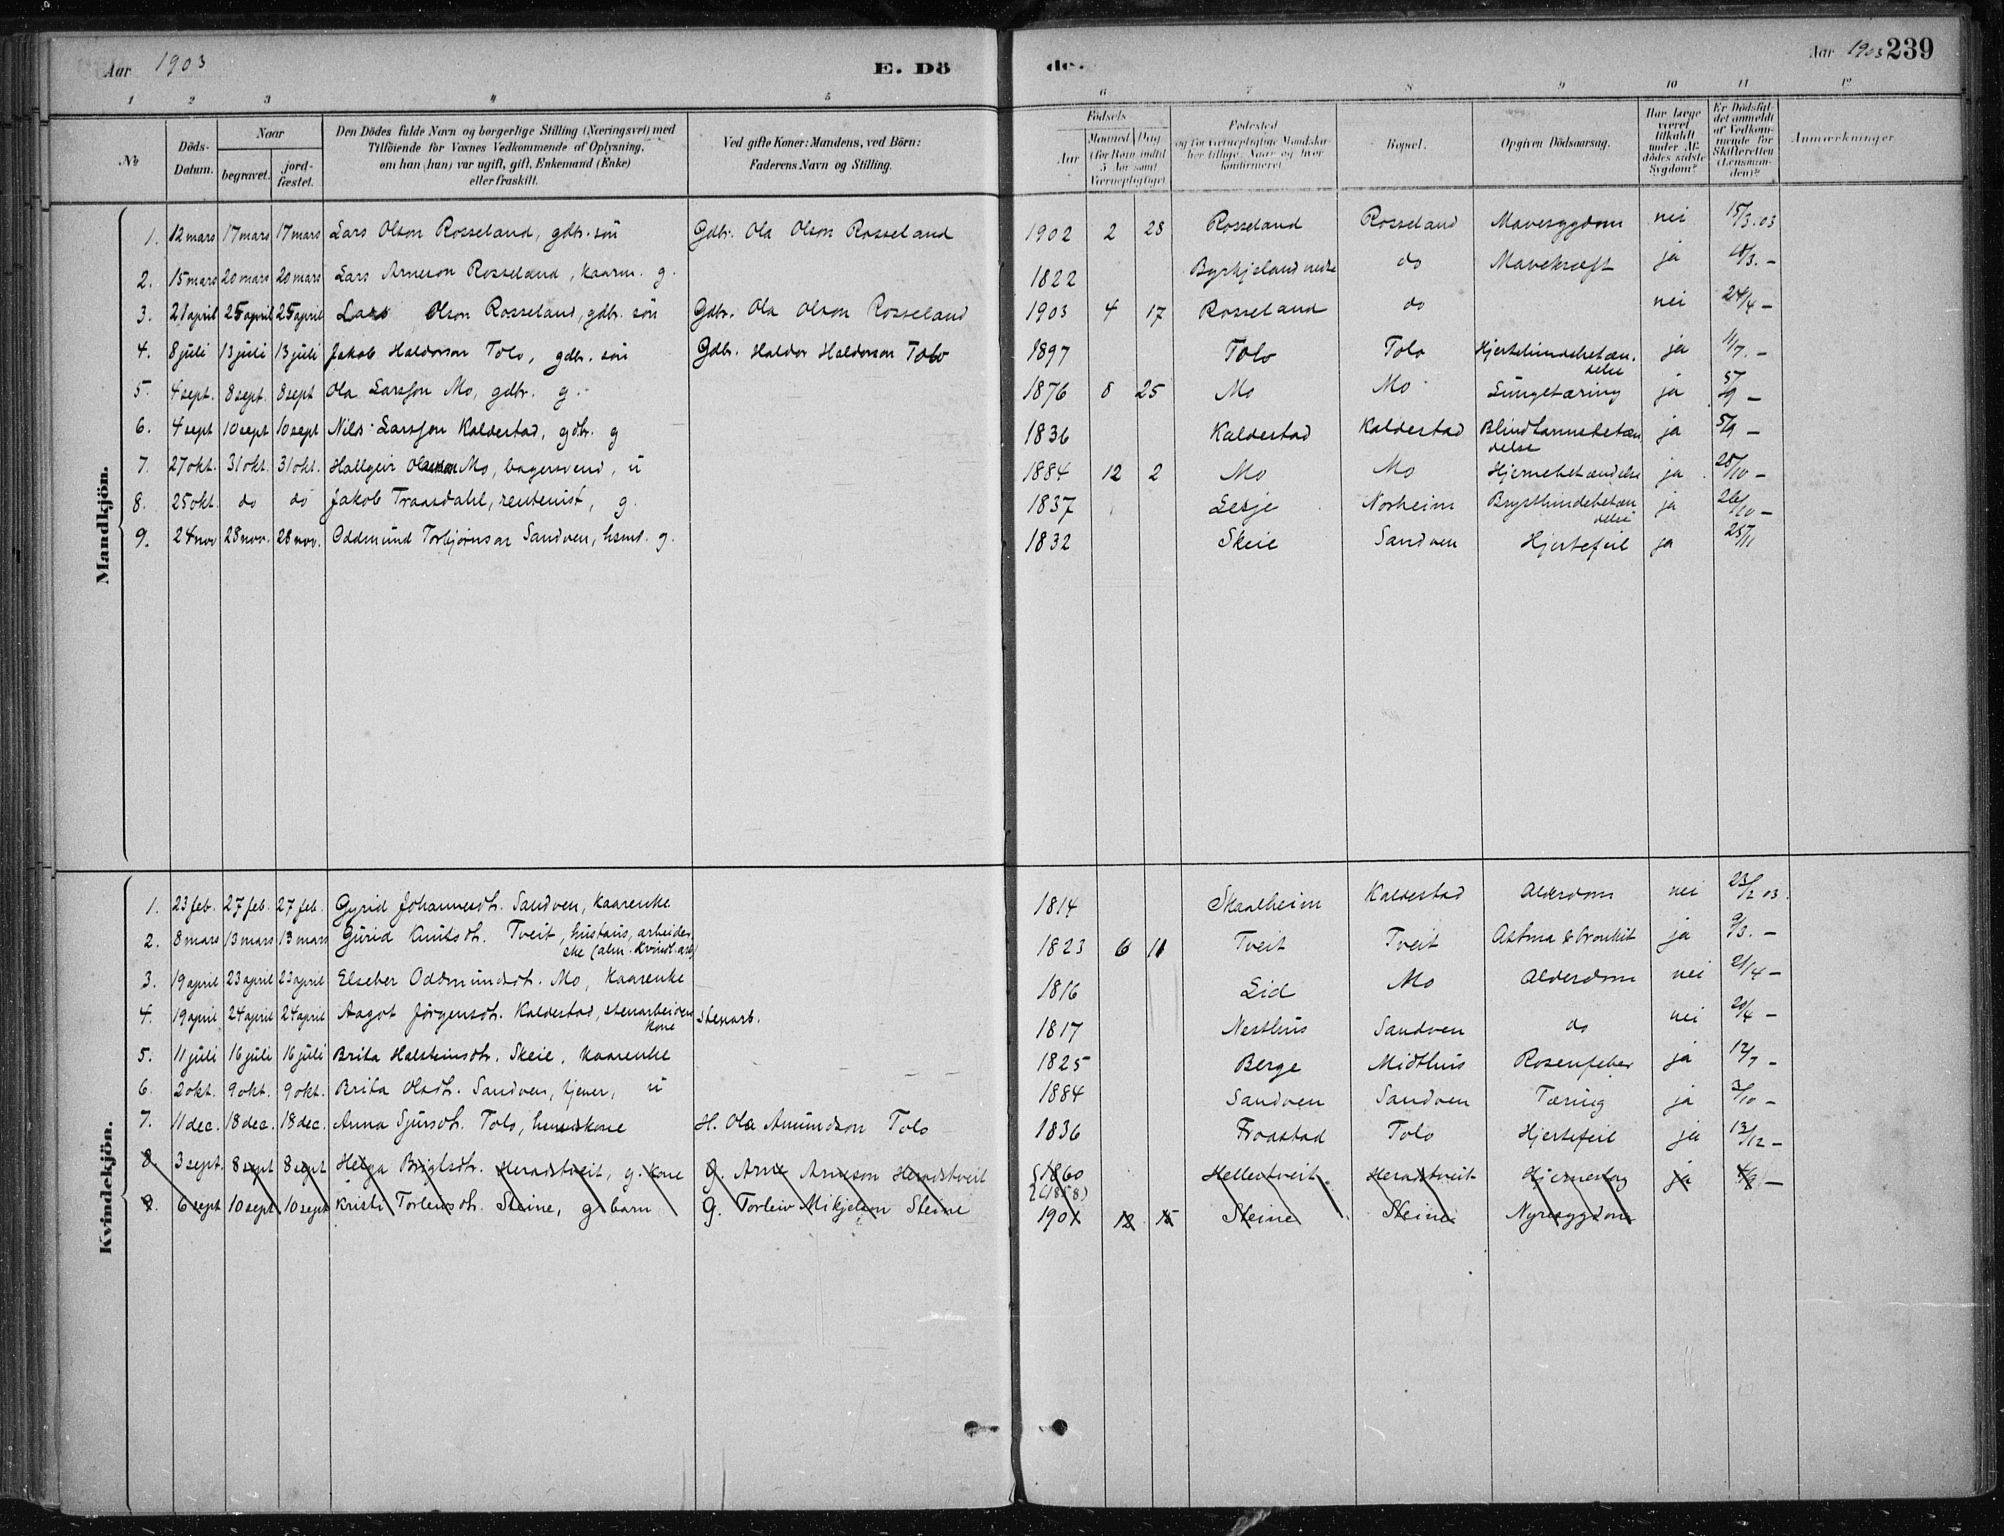 Aar 1903 E. Dö de. Aar 1903 239
1 2 3 4 5 6 7 8 9 10 11 12
No
Döds-Datum.
Naar
begravet.
jord-fæstet.
Den Dödes fulde Navn og borgerlige Stilling (Næringsvei) med
Tilföiende for Voxnes Vedkommende af Oplysning,
om han (hun) var ugift, gift, Enkemand (Enke)
eller fraskilt.
Ved gifte Koner: Mandens, ved Börn:
Faderens Navn og Stilling.
Födsels
Aar
Maaned Dag
(for Børn indtil
5 Aar samt
Værnepligtige).
Fødested
og for værnepligtige Mandskaber tillige: Naar og hvor
konfirmeret.
Bopæl.
Opgiven Dödsaarsag.
Har læge
været
tilkaldt
under Afdödes sidste
Sygdom?
Er Dödsfaldet anmeldt
af Vedkommende for
Skifteretten
(Lensmanden)?
Anmærkninger.
Mandkjön.
1. 12 mars 17 mars 17 mars Lars Olson Rosseland, gdbr. sön Gdbr. Ola Olson Rosseland 1902 2 28 Rosseland Rosseland Mavesygdom nei 15/3.03
2. 15 mars 20 mars 20 mars Lars Arneson Rosseland, kaarm. g. 1822 Byrkjeland nedre do Mavekræft ja 18/3. –
3. 21 april 25 april 25 april Lars Olson Rosseland, gdbr. sön Gdbr. Ola Olson Rosseland 1903 4 17 Rosseland do nei 24/4 –
4. 8 juli 13 juli 13 juli Jakob Haldorson Tolo, gdbr. sön Gdbr. Haldor Haldorson Tolo 1897 Tolo Tolo Hjertehindebetændelse ja 11/7. –
5. 4 sept. 8 sept. 8 sept Ola Larsson Mo, gdbr. g. 1876 8 25 Mo Mo Lungetæring ja 5/9 –
6. 4 sept 10 sept 10 sept Nils Larsson Kaldestad, gdbr. g 1836 Kaldestad Kaldestad Blindtarmsbetændelse ja 5/9 –
7. 27 okt. 31 okt. 31 okt. Hallgeir Mo, bagersvend, u 1884 12 2 Mo Mo Hjernebetændelse ja 28/10 –
8. 25 okt. do do Jakob Traasdahl, rentenist, g. 1837 Lesje Norheim Brysthindebetændelse ja 26/10 –
9. 24 nov 28 nov. 28 nov. Oddmund Torbjørnson Sandven, husm. g. 1832 Skeie Sandven Hjertefeil ja 25/11
Kvindekjön.
1. 23 feb. 27 feb. 27 feb. Gyrid Johannesdtr. Sandven, kaarenke 1814 Skaalheim Kaldestad Alderdom nei 23/2 03.
2. 8 mars 13 mars 13 mars Gurid Knutsdtr. Tveit, husians, arbeiderske (alm. kvindl. arb.) 1823 6 11 Tveit Tveit Astma & bronkit ja 9/3. –
3. 19 april 23 april 23 april Elseber Oddmundsdtr. Mo, kaarenke 1816 Lid Mo Alderdom nei 21/4 –
4. 19 april 24 april 24 april Aagot Jörgensdtr. Kaldestad, stenarbeiderkone stenarb. 1817 Nesthus Sandven do nei 20/4 –
5. 11 juli 16 juli 16 juli Brita Halsteinsdtr. Skeie, kaarenke 1825 Berge Midthus Rosenfeber ja 12/7 –
6. 2 okt. 9 okt. 9 okt. Brita Olsdtr. Sandven, tjener, u 1884 Sandven Sandven Tæring ja 3/10 –
7. 11 dec. 18 dec. 18 dec. Anna Sjursdtr. Tolo, husmdskone H. Ola Amundson Tolo 1836 Fraastad Tolo Hjertefeil ja 13/12 –
8. 3 sept. 8 sept 8 sept Helga Brigtsdtr. Heradstveit, g. kone G. Arne Arneson Heradstveit 1860 (1858) Hellestveit Heradstveit Hjerneslag ja 4/9 –
9. 6 sept 10 sept 10 sept Kristi Torleivsdtr. Steine, g. barn G. Torleiv Mikjelson Steine 1901 12 15 Steine Steine Nyresygdom